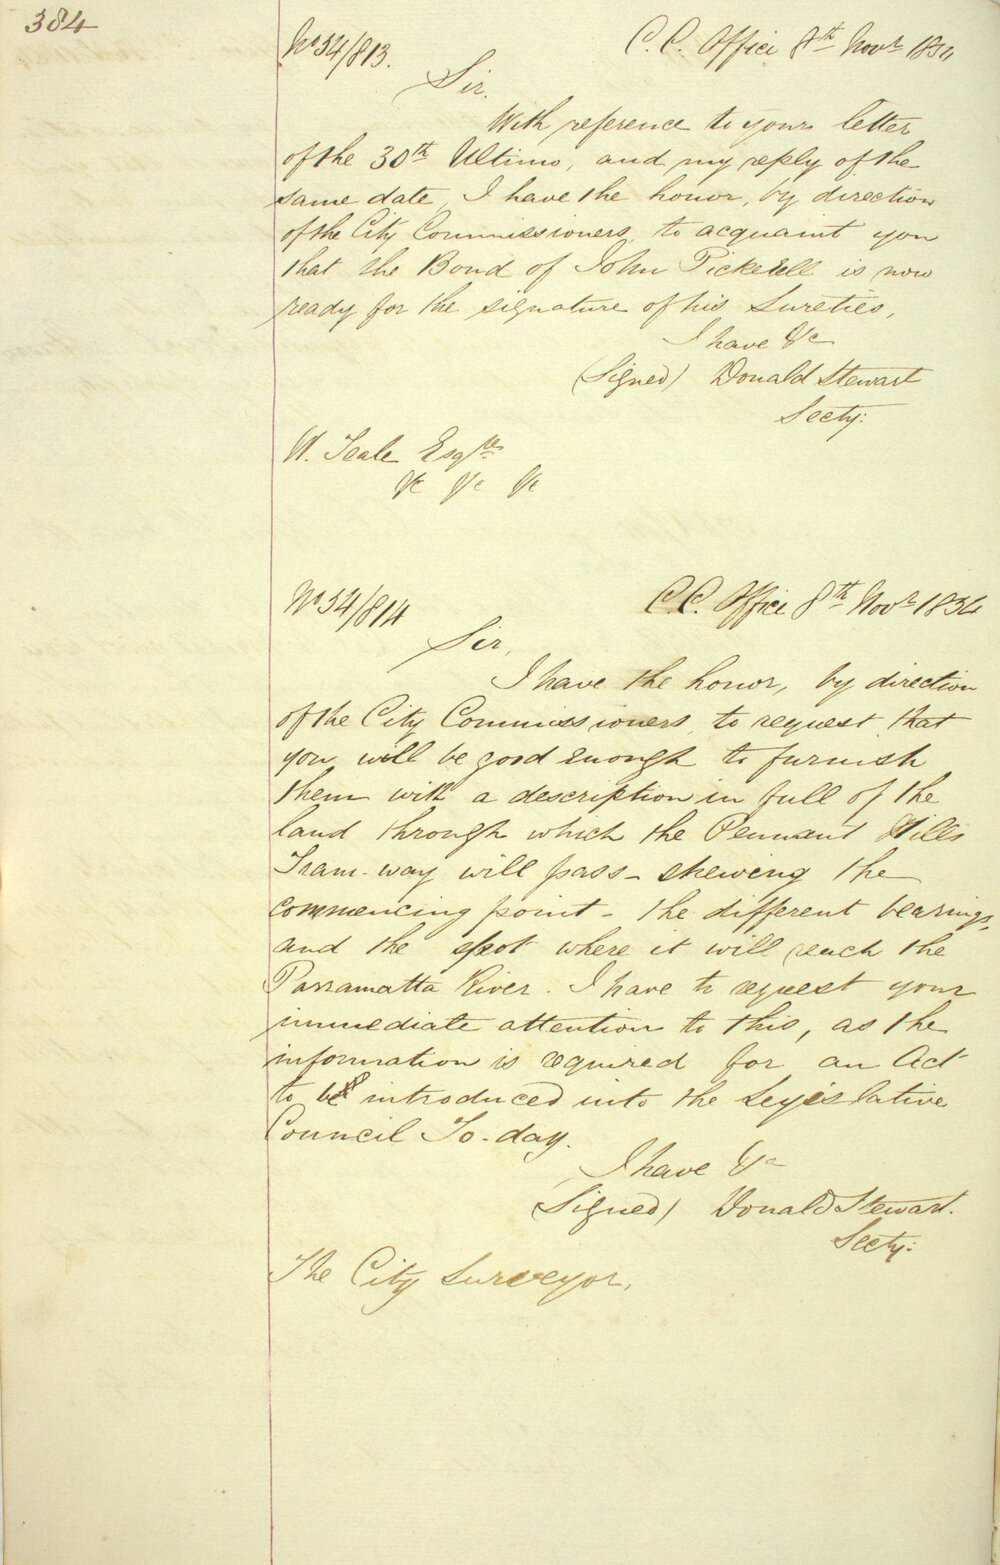 384
No 54/813. C.C. Office 8th Novr 1854
Sir.
With reference to your letter
of the 30th Ultimo, and my reply of the
same date, I have the honor, by direction
of the City Commissioners, to acquaint you
that the Bond of John Pickerell is now
ready for the signature of his Sureties,
I have &c
(Signed) Donald Stewart
Secty:
W. Teale Esqre
&c &c &c
No 54/814 C.C. Office 8th Novr 1854
Sir,
I have the honor, by direction
of the City Commissioners, to request that
you will be good enough to furnish
them with a description in full of the
land through which the Pennant Hills
Tram-way will pass - shewing the
commencing point - the different bearings,
and the spot where it will reach the
Parramatta River. I have to request your
immediate attention to this, as the
information is required for an Act
to be introduced into the Legislative
Council To-day.
I have &c
(Signed) Donald Stewart.
Secty:
The City Surveyor,